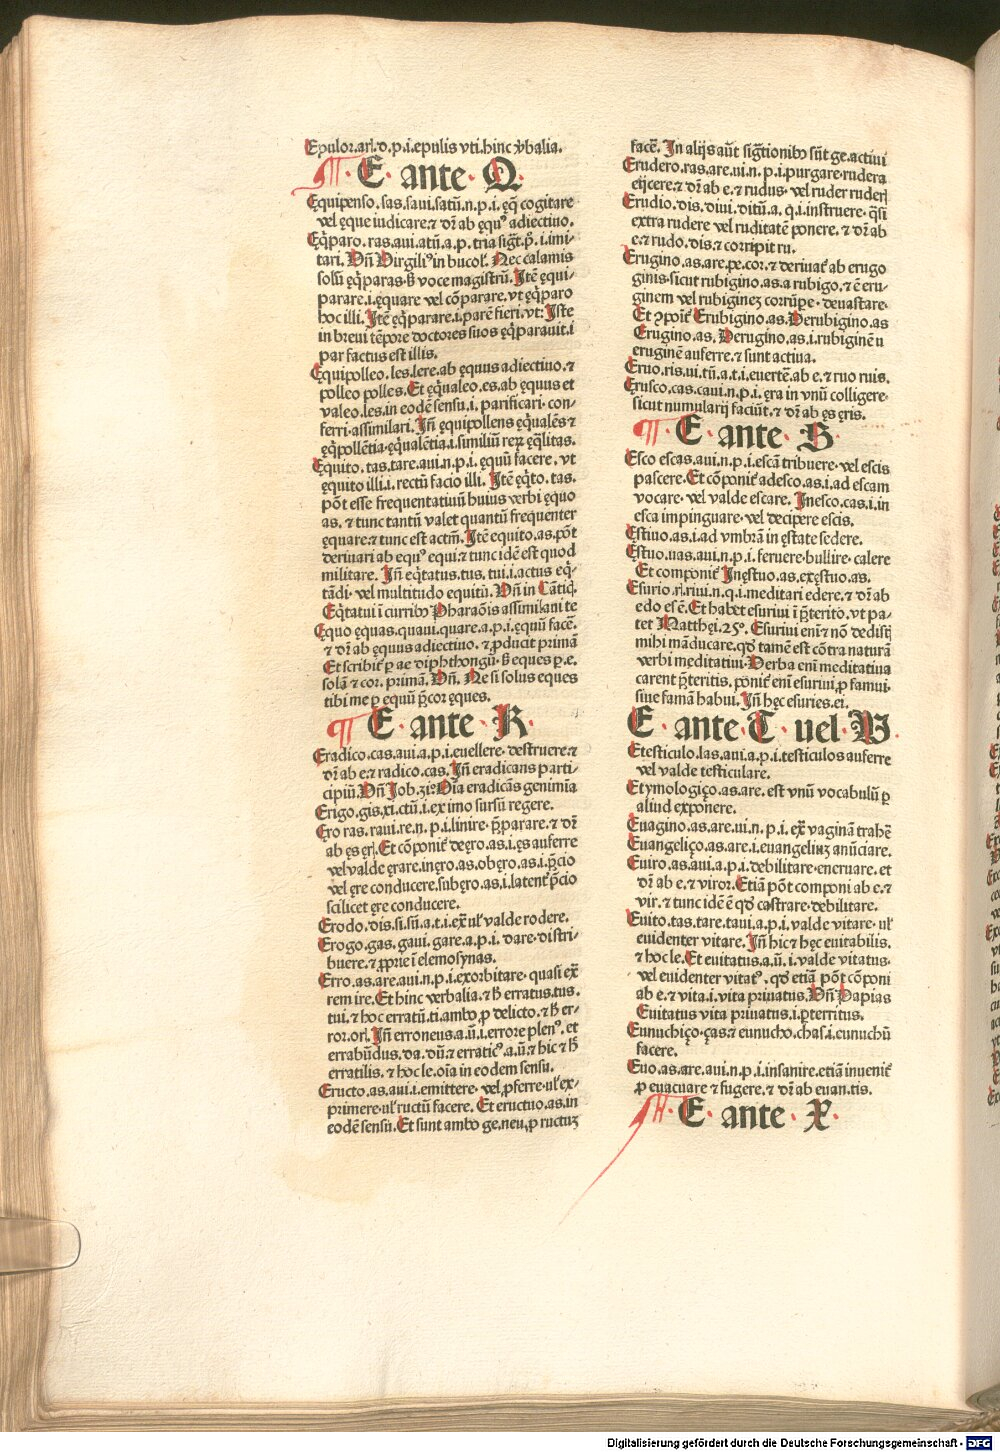 Epulor.arſ.d.p.i.epulis vti.hinc v̄balia.
¶ E · ante · Q.
Ęquipenſo.ſas.ſaui.ſatū.n.p.i.ęq̄ cogitare
vel ęque iudicare.⁊ dr̄ ab ęquꝰ adiectiuo.
Eq̄paro.ras.aui.atū.a.p.tria ſigt̄.pꝰ.i.imi-
tari. Vn̄ Virgiliꝰ in bucoł. Nec calamis
ſolū ęq̄paras.ß voce magiſtrū. Itē ęqui-
parare.i.ęquare vel cōparare.vt ęq̄paro
hoc illi. Itē ęq̄parare.i.parē fieri.vt: Iſte
in breui tēpore doctores ſuos ęq̄parauit.i
par factus eſt illis.
Ęquipolleo.les.lere.ab ęquus adiectiuo.⁊
polleo polles. Et ęq̄ualeo.es.ab ęquus et
valeo.les.in eodē ſenſu.i. parificari· con-
ferri·aſſimilari. Jn̄ ęquipollens ęqualēs ⁊
ęq̄pollētia·ęq̄ualētia.i.ſimiliū reꝝ ęq̄litas.
Ęquito.tas.tare.aui.n.p.i.ęquū facere. vt
ęquito illi.i.rectū facio illi. Itē ęq̄to.tas.
pōt eſſe frequentatiuū huius verbi ęquo
as. ⁊ tunc tantū valet quantū frequenter
ęquare:⁊ tunc eſt actm̄. Itē equito.as.pōt
deriuari ab equꝰ equi:⁊ tunc idē eſt quod
militare. Jn̄ eq̄tatus.tus. tui.i actus eq̄-
tādi· vel multitudo equitū. Vn̄ in Cātiq̄.
Eq̄tatui ī curribꝰ Pharaōis aſſimilaui te
Ęquo ęquas.quaui.quare.a.p.i.ęquū facē.
⁊ dr̄ ab ęquus adiectiuo. ⁊ ꝓducit primā
Et ſcribiť ꝑ ae diphthongū. ß eques ꝑ.e.
ſolā ⁊ cor. primā. Vn̄. Ne ſi ſolus eques
tibi me ꝑ equū p̄cor ęques.
¶ E · ante · R.
Eradico.cas.aui.a.p.i.euellere· deſtruere.⁊
dr̄ ab e.⁊ radico.cas. Jn̄ eradicans parti-
cipiū. Vn̄ Job.31º Oīa eradicās genimia
Erigo.gis.xi.ctū.i.ex imo ſurſū regere.
Ęro ras.raui.re.n.p.i.linire· p̄parare.⁊ dr̄
ab ęs ęrſ. Et cōponiť deęro.as.i.ęs auferre
vel valde ęrare.inęro.as.obęro.as.i.p̄cio
vel ęre conducere.ſubęro.as.i.latent̓ p̄cio
ſcilicet ęre conducere.
Erodo.dis.ſi.ſū.a.t.i.ex̄ uł valde rodere.
Erogo.gas.gaui.gare.a.p.i. dare·diſtri-
buere.⁊ ꝓprie ī elemoſynas.
Erro.as.are.aui.n.p.i.exorbitare· quaſi ex̄
rem ire. Et hinc verbalia.⁊ h̄ erratus.tus.
tui.⁊ hoc erratū.ti.ambo ꝓ delicto.⁊ h̄ er-
ror.orſ. Jn̄ erroneus.a.ū.i.errore plenꝰ. et
errabūdus.da.dū.⁊ erraticꝰ.a.ū.⁊ hic ⁊ h̄
erratilis.⁊ hoc le.oīa in eodem ſenſu.
Eructo.as.aui.i.emittere· vel ꝓferre·uł ex-
primere·uł ructū facere. Et eructuo.as.in
eodē ſenſu. Et ſunt ambo ge.neu.ꝓ ructuꝫ
facē. In alijs aūt ſigt̄ionibꝰ ſūt ge.actiui
Erudero.ras.are.ui.n.p.i.purgare·rudera
eijcere.⁊ dr̄ ab e.⁊ rudus· vel ruder ruderſ
Erudio.dis.diui.ditū.a.q.i.inſtruere· q̄ſi
extra rudere vel ruditatē ponere.⁊ dr̄ ab
e.⁊ rudo.dis.⁊ corripit ru.
Erugino.as.are.pe.cor.⁊ deriuať ab erugo
ginis·ſicut rubigino.as.a rubigo.⁊ ē eru-
ginem vel rubiginez corrūpe·deuaſtare.
Et ꝯpoīť Erubigino.as. Derubigino.as
Erugino.as. Derugino.as.i.rubiginē ū
eruginē auferre.⁊ ſunt actiua.
Eruo.ris.ui.tū.a.t.i.euertē.ab e.⁊ ruo ruis.
Eruſco.cas.caui.n.p.i.ęra in vnū colligere·
ſicut numularij faciūt.⁊ dr̄ ab ęs ęris.
¶ E · ante · S.
Eſco eſcas.aui.n.p.i.eſcā tribuere· vel eſcis
paſcere. Et cōponiť adeſco.as.i.ad eſcam
vocare· vel valde eſcare. Ineſco.cas.i.in
eſca impinguare· vel decipere eſcis.
Ęſtiuo.as.i.ad vmbrā in ęſtate ſedere.
Ęſtuo.uas.aui.n.p.i.feruere·bullire· calere
Et componiť Jnęſtuo.as.exęſtuo.as.
Eſurio.rſ.riui.n.q.i.meditari edere.⁊ dr̄ ab
edo eſ ē. Et habet eſuriui ī p̄terito.vt pa-
tet Matthęi.25º. Eſuriui enī ⁊ nō dediſtſ
mihi māducare.qd̓ tamē eſt cōtra naturā
verbi męditatiui. Verba enī meditatiua
carent p̄teritis. poniť enī eſuriui ꝓ famui·
ſiue famā habui. Jn̄ hęc eſuries.ei.
E · ante · T · uel · V.
Eteſticulo.las.aui.a.p.i.teſticulos auferre
vel valde teſticulare.
Etymologiço.as.are. eſt vnū vocabulū ꝑ
aliud exponere.
Euagino.as.are.ui.n.p.i. ex̄ vaginā trahē
Euangeliço.as.are.i.euangeliuꝫ anūciare.
Euiro.as.aui.a.p.i.debilitare·eneruare. et
dr̄ ab e.⁊ viror. Etiā pōt componi ab e.⁊
vir.⁊ tunc idē ē qd̓ caſtrare·debilitare.
Euito.tas.tare.taui.a.p.i.valde vitare· uł
euidenter vitare. Jn̄ hic ⁊ hęc euitabilis.
⁊ hoc le. Et euitatus.a.ū.i.valde vitatus·
vel euidenter vitatꝰ. qd̓ etiā pōt cōponi
ab e.⁊ vita.i.vita priuatus. Vn̄ Papias
Euitatus vita priuatus.i.ꝑterritus.
Eunuchiço·ças.⁊ eunucho.chas.i.eunuchū
facere.
Euo.as.are.aui.n.p.i.inſanire.etiā inueniť
ꝓ euacuare ⁊ fugere.⁊ dr̄ ab euan.tis.
¶ E · ante · X.
Digitalisierung gefördert durch die Deutsche Forschungsgemeinschaft - DFG